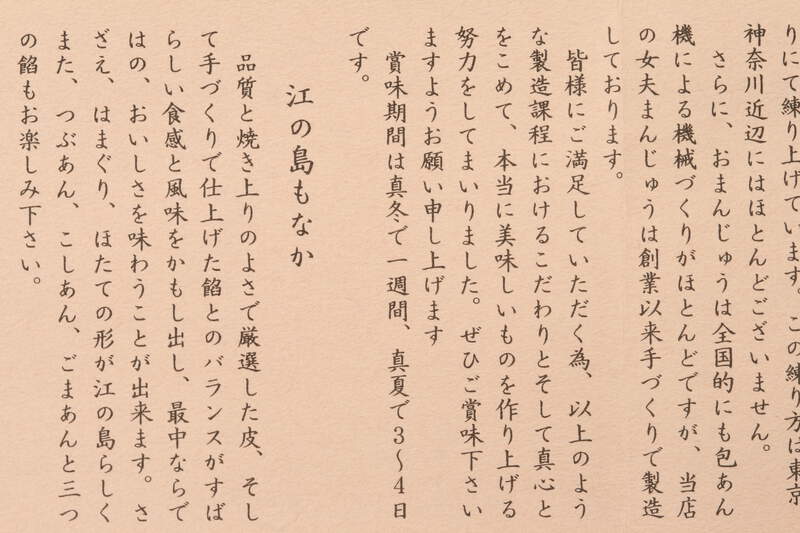 りにて練り上げています。この練り方は東京
神奈川近辺にはほとんどございません。
さらに、おまんじゅうは全国的にも包あん
機による機械づくりがほとんどですが、当店
の女夫まんじゅうは創業以来手づくりで製造
しております。
皆様にご満足していただく為、以上のよう
な製造課程におけるこだわりとそして真心と
をこめて、本当に美味しいものを作り上げる
努力をしてまいりました。ぜひご賞味下さい
ますようお願い申し上げます
賞味期間は真冬で一週間、真夏で3〜4日
です。
江の島もなか
品質と焼き上りのよさで厳選した皮、そし
て手づくりで仕上げた餡とのバランスがすば
らしい食感と風味をかもし出し、最中ならで
はの、おいしさを味わうことが出来ます。さ
ざえ、はまぐり、ほたての形が江の島らしく
また、つぶあん、こしあん、ごまあんと三つ
の餡もお楽しみ下さい。